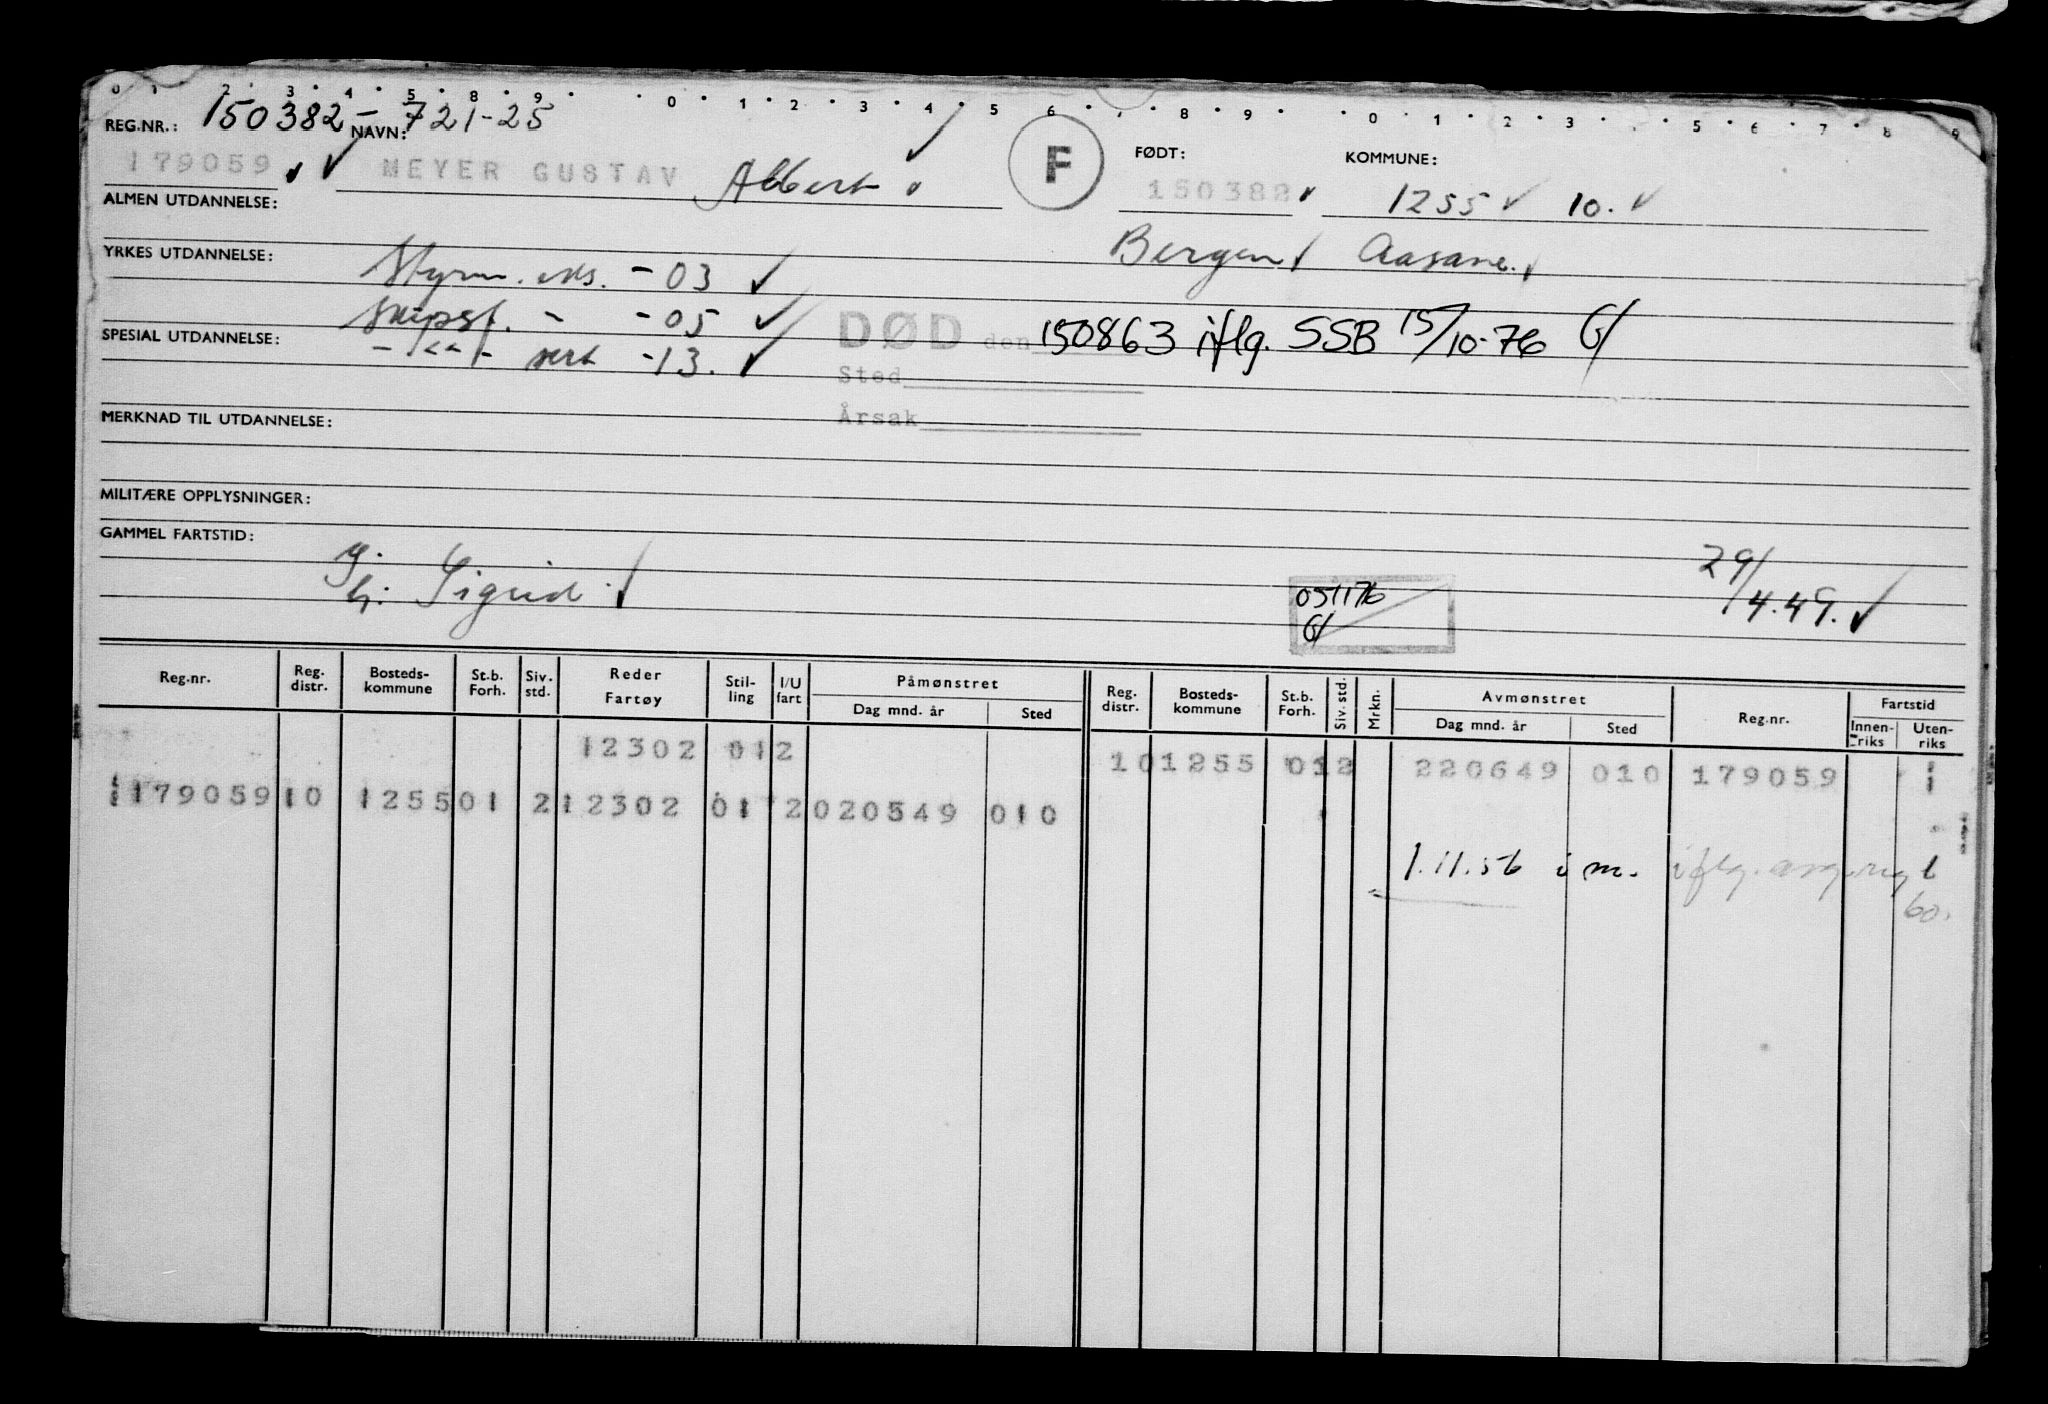 0 1 2 3 4 5 8 9 0 1 2 3 4 5 6 7 8 9 0 1 2 3 5 6 7 8 9
150382-721-25
REG.NR.: NAVN: FØDT: KOMMUNE:
179059 MEYER GUSTAV Albert F 150382 1255 10.
ALMEN UTDANNELSE:
Bergen Aasane.
YRKES UTDANNELSE: Styrm. eks. - 03
Skipsf. - - 05
SPESIAL UTDANNELSE: DØD den 150863 iflg. SSB 15/10-76 G/
-"- sert -13.
Sted
Årsak
MERKNAD TIL UTDANNELSE:
MILITÆRE OPPLYSNINGER:
GAMMEL FARTSTID:
g. 29/4.49.
h. Sigrid
051176
G/
Reg.nr. Reg. distr. Bosteds-kommune St.b. Forh. Siv. std. Reder Fartøy Stil-ling I/U fart Påmønstret Dag mnd. år Sted Reg. distr. Bosteds-kommune St.b. Forh. Siv. std. Mrkn. Avmønstret Dag mnd. år Sted Reg.nr. Fartstid Innen-riks Uten-riks
12302 012 10 1255 012 220649 010 179059 1
1179059 10 1255 01 2 12302 01 2 020549 010
1.11.56 i m. iflg.
60.